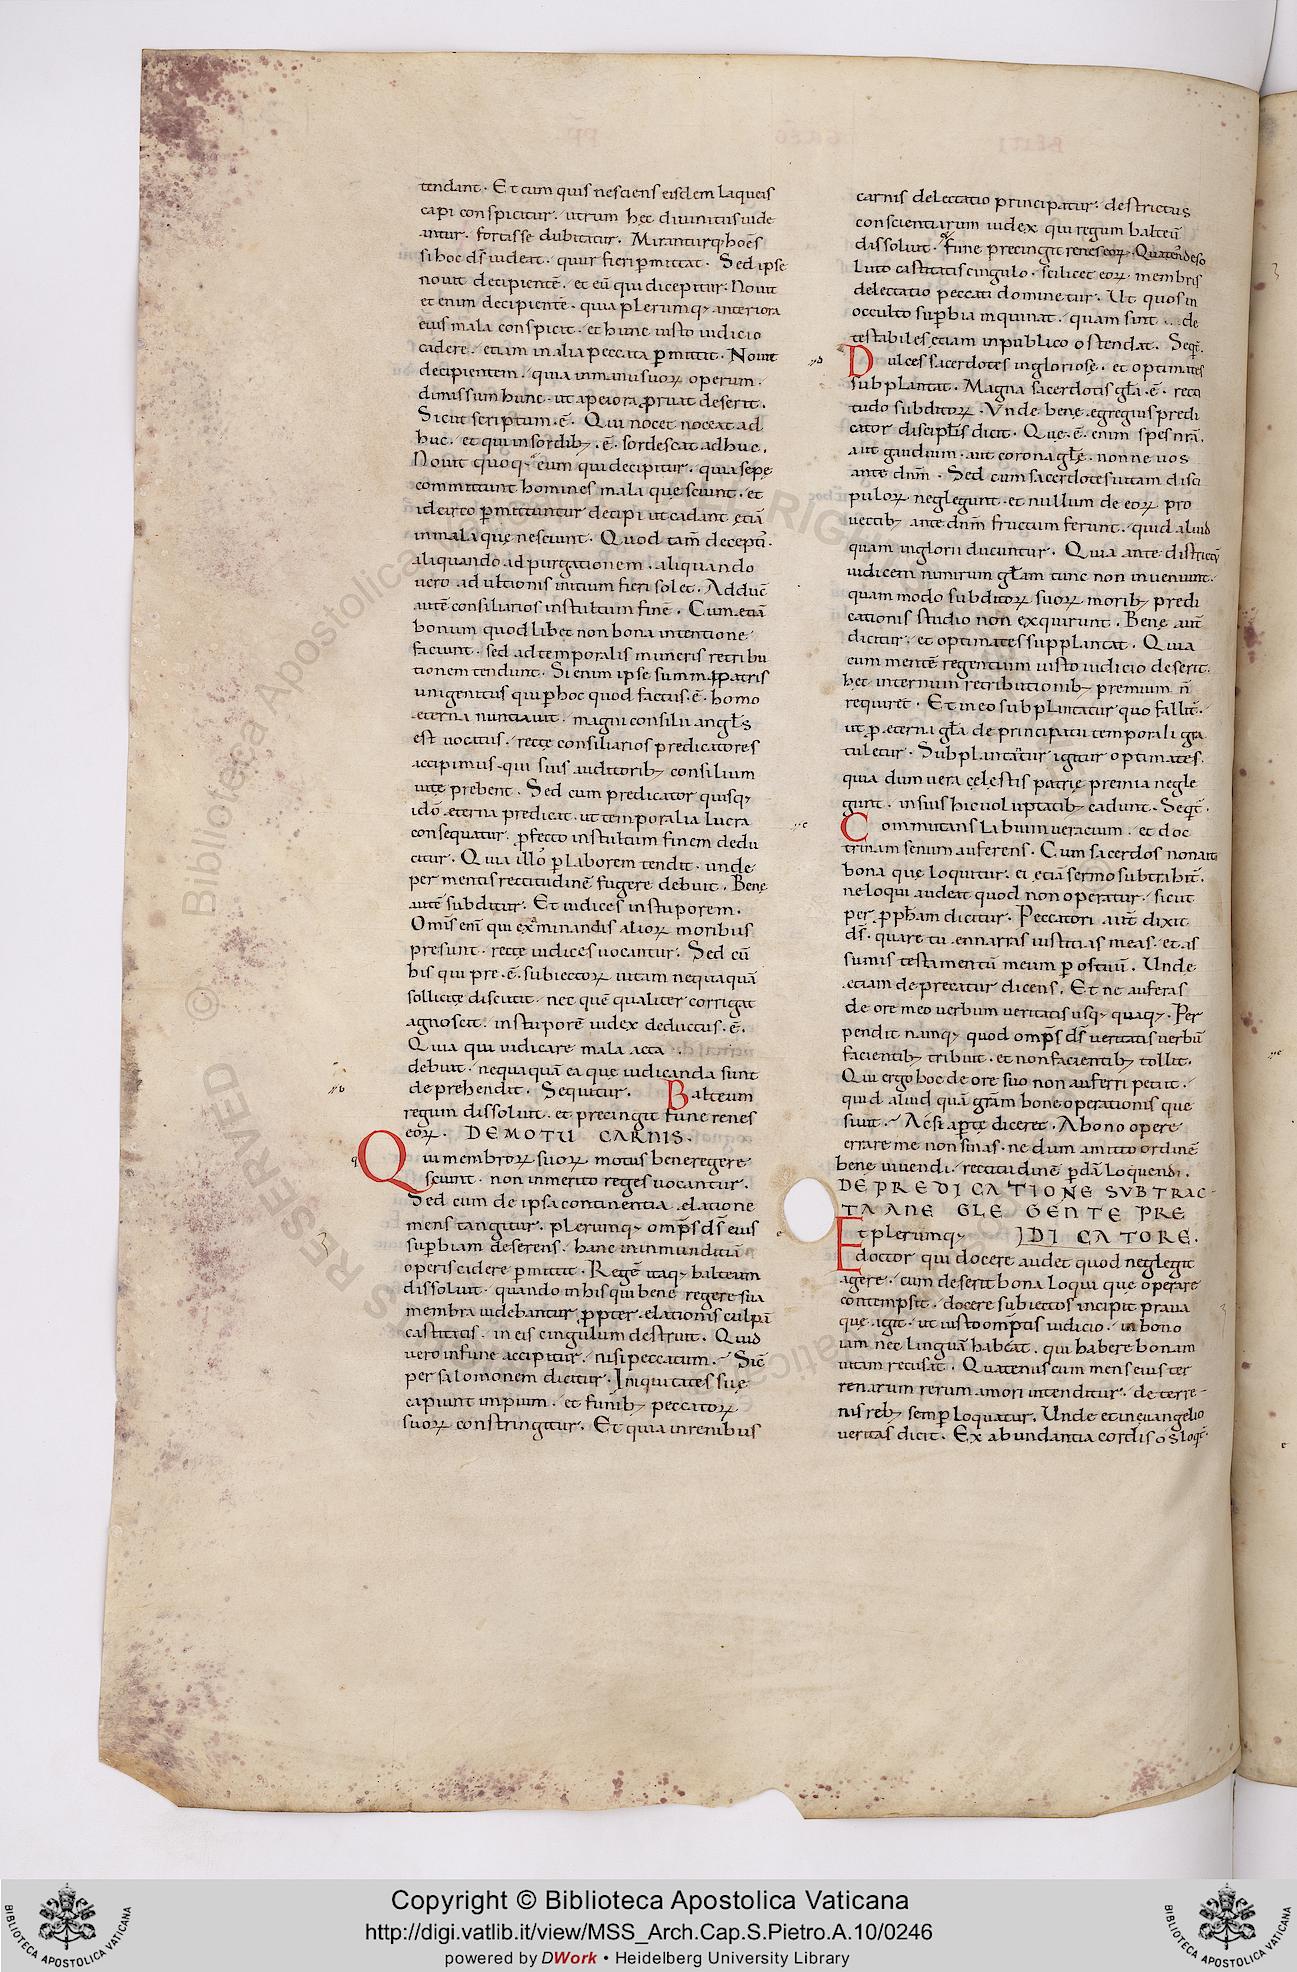 tendant · Et cum quis nesciens eisdem laqueis
capi conspicitur · utrum hęc divinitus vide
antur · fortisse dubitatur . Miranturq; hoēs
si hoc ds̄ videat · quur fieri ꝑmittat · Sed ipse
novit decipientē · et eū qui dicepitur · Novit
et enim decipientē · quia plerumq; anteriora
eius mala conspicit · et hunc iusto iudicio
cadere · etiam in alia peccata ꝑmittit · Novit
decipientem · quia in manu suoꝝ operum ·
dimissum hunc · ut ad peiora ꝓruat deserit ·
Sicut scriptum · ē · Qui nocet noceat ad
huc · et qui in sordib; · ē · sordescat adhuc ·
Novit quoq; eum qui decipitur · quia sepę
committunt homines mala quę sciunt · et
idcirco ꝑmittuntur decipi ut cadant etiā
in mala quę nesciunt · Quod tam̄ decepti ·
aliquando ad purgationem · aliquando
vero ad ultionis initium fieri solet · Adduc̄
autē consiliarios in stultum finē · Cum etiā
bonum quodlibet non bona intentione
faciunt · sed ad temporalis muneris retribu
tionem tendunt · Si enim ipse summi patris
unigenitus qui ꝑ hoc quod factus · ē · homo
ęterna nuntiavit · magni consilii angl̄s
est vocatus · recte consiliarios predicatores
accipimus · qui suis auditorib; consilium
vitę prebent · Sed cum predicator quisq;
idō ęterna predicat · ut temporalia lucra
consequatur · ꝓfecto in stultum finem dedu
citur · Quia illo ꝑ laborem tendit · unde
per mentis rectitudinē fugere debuit · Benę
autē subditur · Et iudices in stuporem ·
Omīs enī qui examinandis alioꝝ moribus
presunt · recte iudices vocantur · Sed cū
his qui pre · ē · subiectoꝝ vitam nequaquā
sollicite discutit · nec quē qualiter corrigat
agnoscit · in stuporē iudex deductus · ē ·
Quia qui iudicare mala acta
debuit · nequaquā ea quę iudicanda sunt
deprehendit · Sequitur · Balteum
regum dissolvit · et precingit fune renes
eoꝝ · DE MOTU CARNIS ·
Qui membroꝝ suoꝝ motus bene regere
sciunt · non inmerito reges vocantur ·
Sed cum de ipsa continentia elatione
mens tangitur · plerumq; omp̄s ds̄ eius
suꝑbiam deserens · hanc in inmunditiā
operis cadere ꝑmittit · Regē itaq; balteum
dissolvit · quando in his qui bene regere sua
membra videbantur ꝓpter elationis culpā
castitatis · in eis cingulum destruit · Quid
vero in fune accipitur · nisi peccatum · Sic̄
per salomonem dicitur · Iniquitates suę
capiunt impium · et funib; peccatoꝝ
suoꝝ constringitur · Et quia in renibus
carnis delectatio principatur · destrictus
conscientiarum iudex qui regum balteū
dissolvit · fune precingit renes eoꝝ · Quaten̄ deso
luto castitatis cingulo · scilicet eoꝝ membris
delectatio peccati dominetur · Ut quos in
occulto suꝑbia inquinat · quam sint de
testabiles etiam in publico ostendat · Seqt̄ ·
Dulces sacerdotes ingloriose · et optimates
subplantat · Magna sacerdotis gl̄a · ē · recti
tudo subditoꝝ · Unde benę egregius predi
cator discipl̄is dicit · Que · ē · enim spes nr̄a ·
aut gaudium · aut corona gl̄ę · nonne vos
ante dnm̄ · Sed cum sacerdotes vitam disci
puloꝝ neglegunt · et nullum de eoꝝ pro
vectib; ante dnm̄ fructum ferunt · quid aliud
quam inglorii ducuntur · Quia ante districtū
iudicem nimirum gl̄am tunc non inveniunt ·
quam modo subditoꝝ suoꝝ morib; predi
cationis studio non exquirunt · Benę aut̄
dicitur · et optimates supplantat · Quia
cum mentē regentium iusto iudicio deserit ·
hęc internum retributionib; premium n̄
requiret · Et in eo subplantatur quo fallit̄ ·
ut ꝓ ęterni gl̄a de principatu temporali gra
tuletur · Subplantātur igitur optimates ·
quia dum vera cęlestis patrię premia negle
gunt · in suis hic voluptatib; cadunt · Seqt̄ ·
Commutans labium veracium · et doc
trinam senum auferens · Cum sacerdos non agit
bona quę loquitur · ei etiā sermo subtrahit̄ ·
ne loqui audeat quod non operatur · sicut
per ꝓph̄am dicitur · Peccatori aut̄ dixit
ds̄ · quare tu ennarras iustitias meas · et as
sumis testamentū meum ꝑ os tuū · Unde
etiam deprecatur dicens · Et ne auferas
de ore meo verbum veritatis usq; quaq; · Per
pendit namq; quod omp̄s ds̄ veritatis verbū
facientib; tribuit · et non facientib; tollit ·
Qui ergo hoc de ore suo non auferri petiit ·
quid aliud quā gr̄am bone operationis que
sivit · Ac si aꝑte diceret · A bono opere
errare me non sinas · ne dum amitto ordinē
bene vivendi · rectitudinē ꝑdā loquendi ·
DE PREDICATIONE SUBTRAC
TA A NEGLEGENTE PRE
DICATORE ·
Et plerumq;
doctor qui docere audet quod neglegit
agere · cum deserit bona loqui que operare
contempsit · docere subiectos incipit prava
que agit · ut iusto omp̄tis iudicio · in bono
iam nec linguā habeat · qui habere bonam
vitam recusat · Quatenus cum mens eius ter
renarum rerum amori intenditur · de terre
nis reb; semꝑ loquatur · Unde et in evangelio
veritas dicit · Ex abundantia cordis os loqt̄ ·
Copyright © Biblioteca Apostolica Vaticana
http://digi.vatlib.it/view/MSS_Arch.Cap.S.Pietro.A.10/0246
powered by DWork • Heidelberg University Library